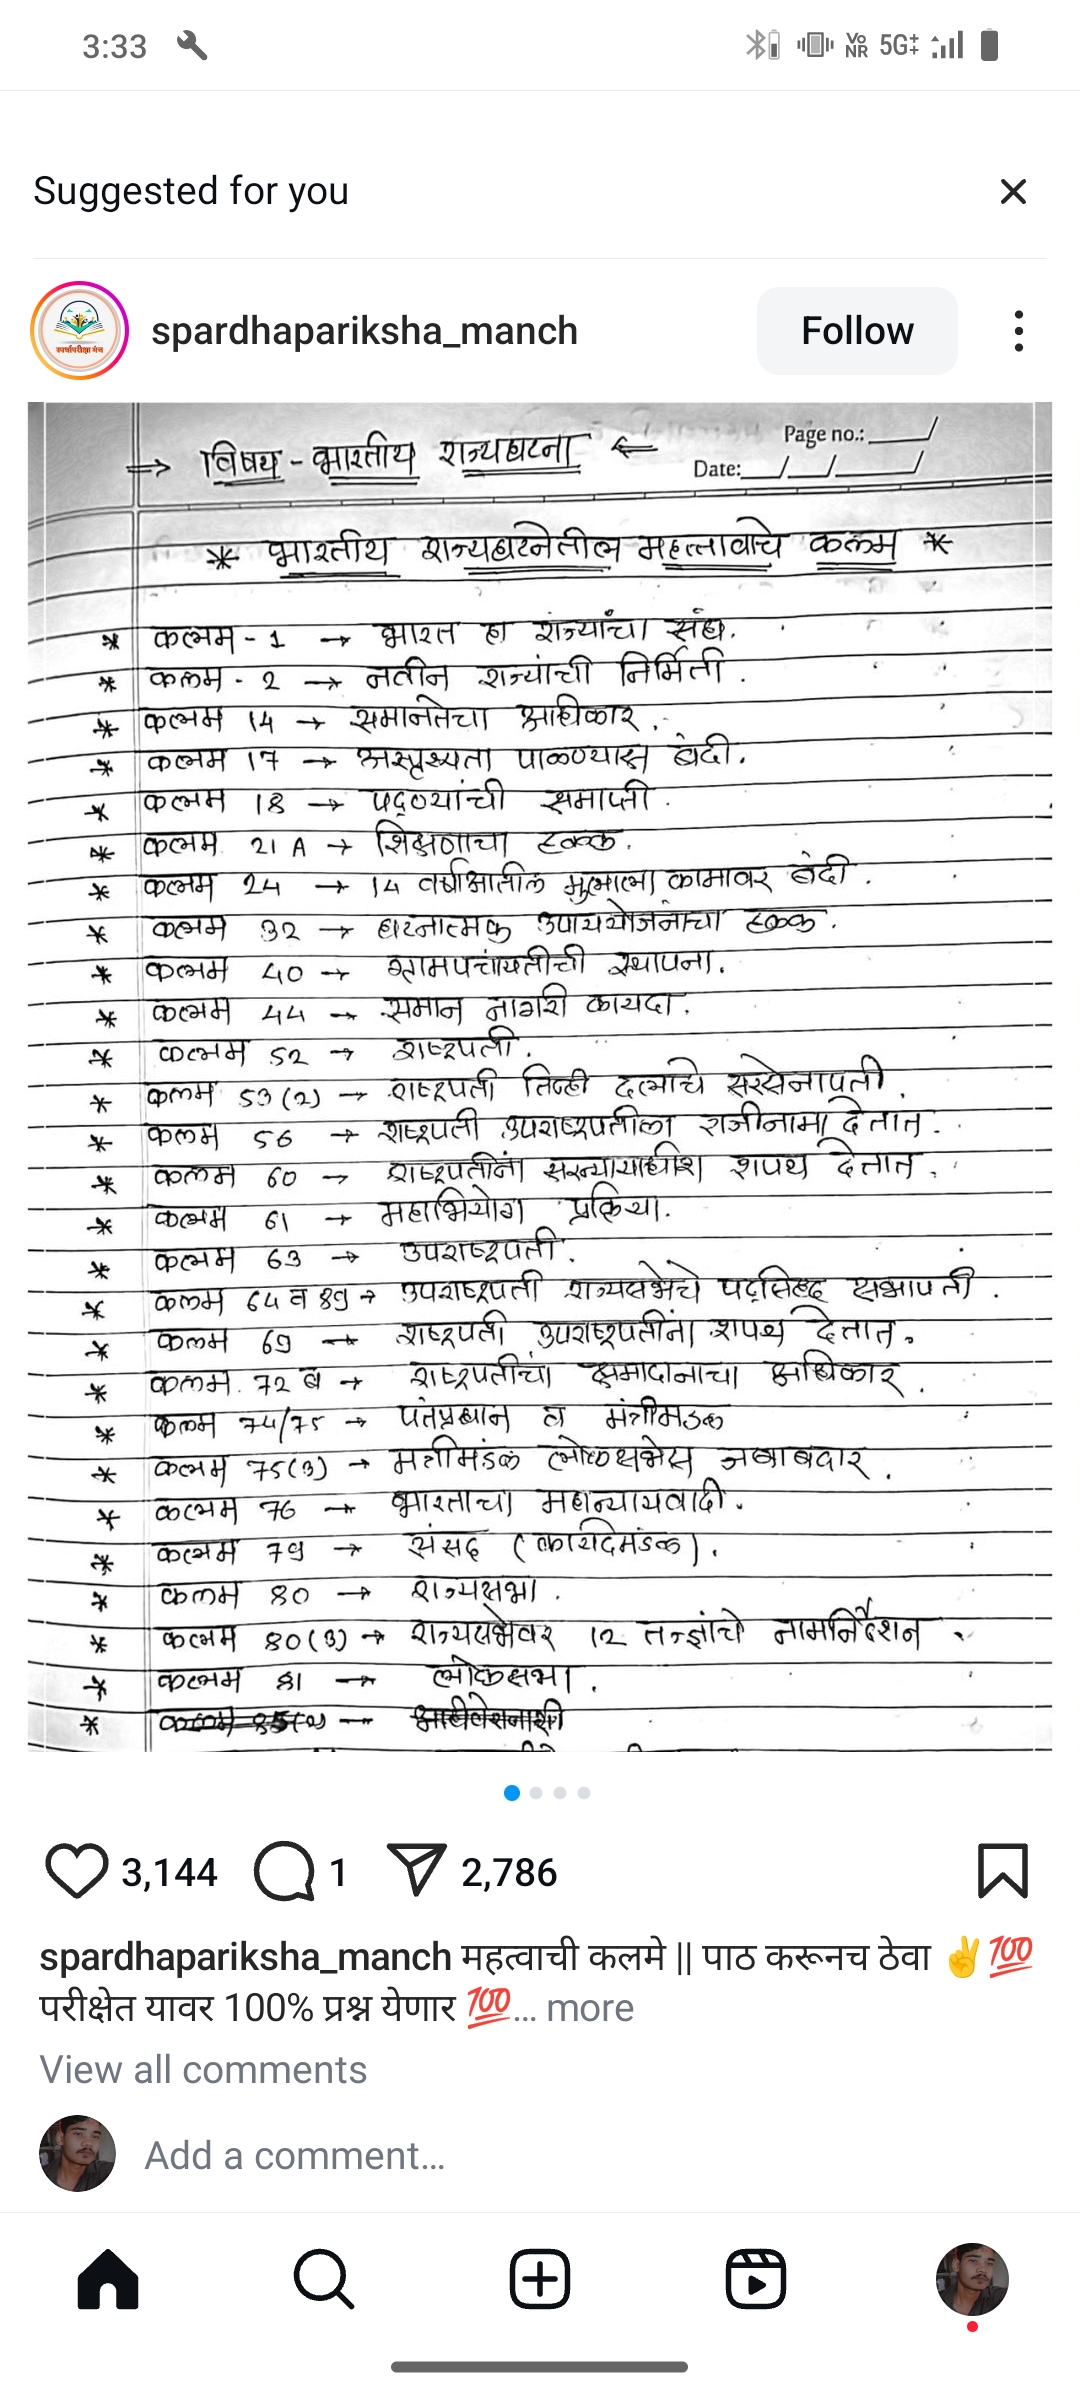 3:33
Vo
NR
5G
Suggested for you
स्पर्धापरीक्षा मंच
spardhapariksha_manch
Follow
Page no.:
⇒ विषय - भारतीय राज्यघटना ⇐
Date: / /
* भारतीय राज्यघटनेतील महत्त्वाचे कलम *
* कलम - 1 → भारत हा राज्यांचा संघ.
* कलम - 2 → नवीन राज्यांची निर्मिती.
* कलम 14 → समानतेचा अधिकार.
* कलम 17 → अस्पृश्यता पाळण्यास बंदी.
* कलम 18 → पदव्यांची समाप्ती.
* कलम 21 A → शिक्षणाचा हक्क.
* कलम 24 → 14 वर्षाआतील मुलाला कामावर बंदी.
* कलम 32 → घटनात्मक उपाययोजनांचा हक्क.
* कलम 40 → ग्रामपंचायतीची स्थापना.
* कलम 44 → समान नागरी कायदा.
* कलम 52 → राष्ट्रपती.
* कलम 53 (2) → राष्ट्रपती तिन्ही दलाचे सरसेनापती.
* कलम 56 → राष्ट्रपती उपराष्ट्रपतीला राजीनामा देतात.
* कलम 60 → राष्ट्रपतींना सरन्यायाधीश शपथ देतात.
* कलम 61 → महाभियोग प्रक्रिया.
* कलम 63 → उपराष्ट्रपती.
* कलम 64 व 89 → उपराष्ट्रपती राज्यसभेचे पदसिद्ध सभापती.
* कलम 69 → राष्ट्रपती उपराष्ट्रपतींना शपथ देतात.
* कलम. 72 व → राष्ट्रपतींचा क्षमादानाचा अधिकार.
* कलम 74/75 → पंतप्रधान व मंत्रीमंडळ
* कलम 75(3) → मंत्रीमंडळ लोकसभेस जबाबदार.
* कलम 76 → भारताचा महान्यायवादी.
* कलम 79 → संसद (कायदेमंडळ).
* कलम 80 → राज्यसभा.
* कलम 80(3) → राज्यसभेवर 12 तज्ज्ञांचे नामनिर्देशन
* कलम 81 → लोकसभा.
* कलम 85(2) →
3,144
1
2,786
spardhapariksha_manch महत्वाची कलमे || पाठ करूनच ठेवा ✌️💯
परीक्षेत यावर 100% प्रश्न येणार 💯... more
View all comments
Add a comment...